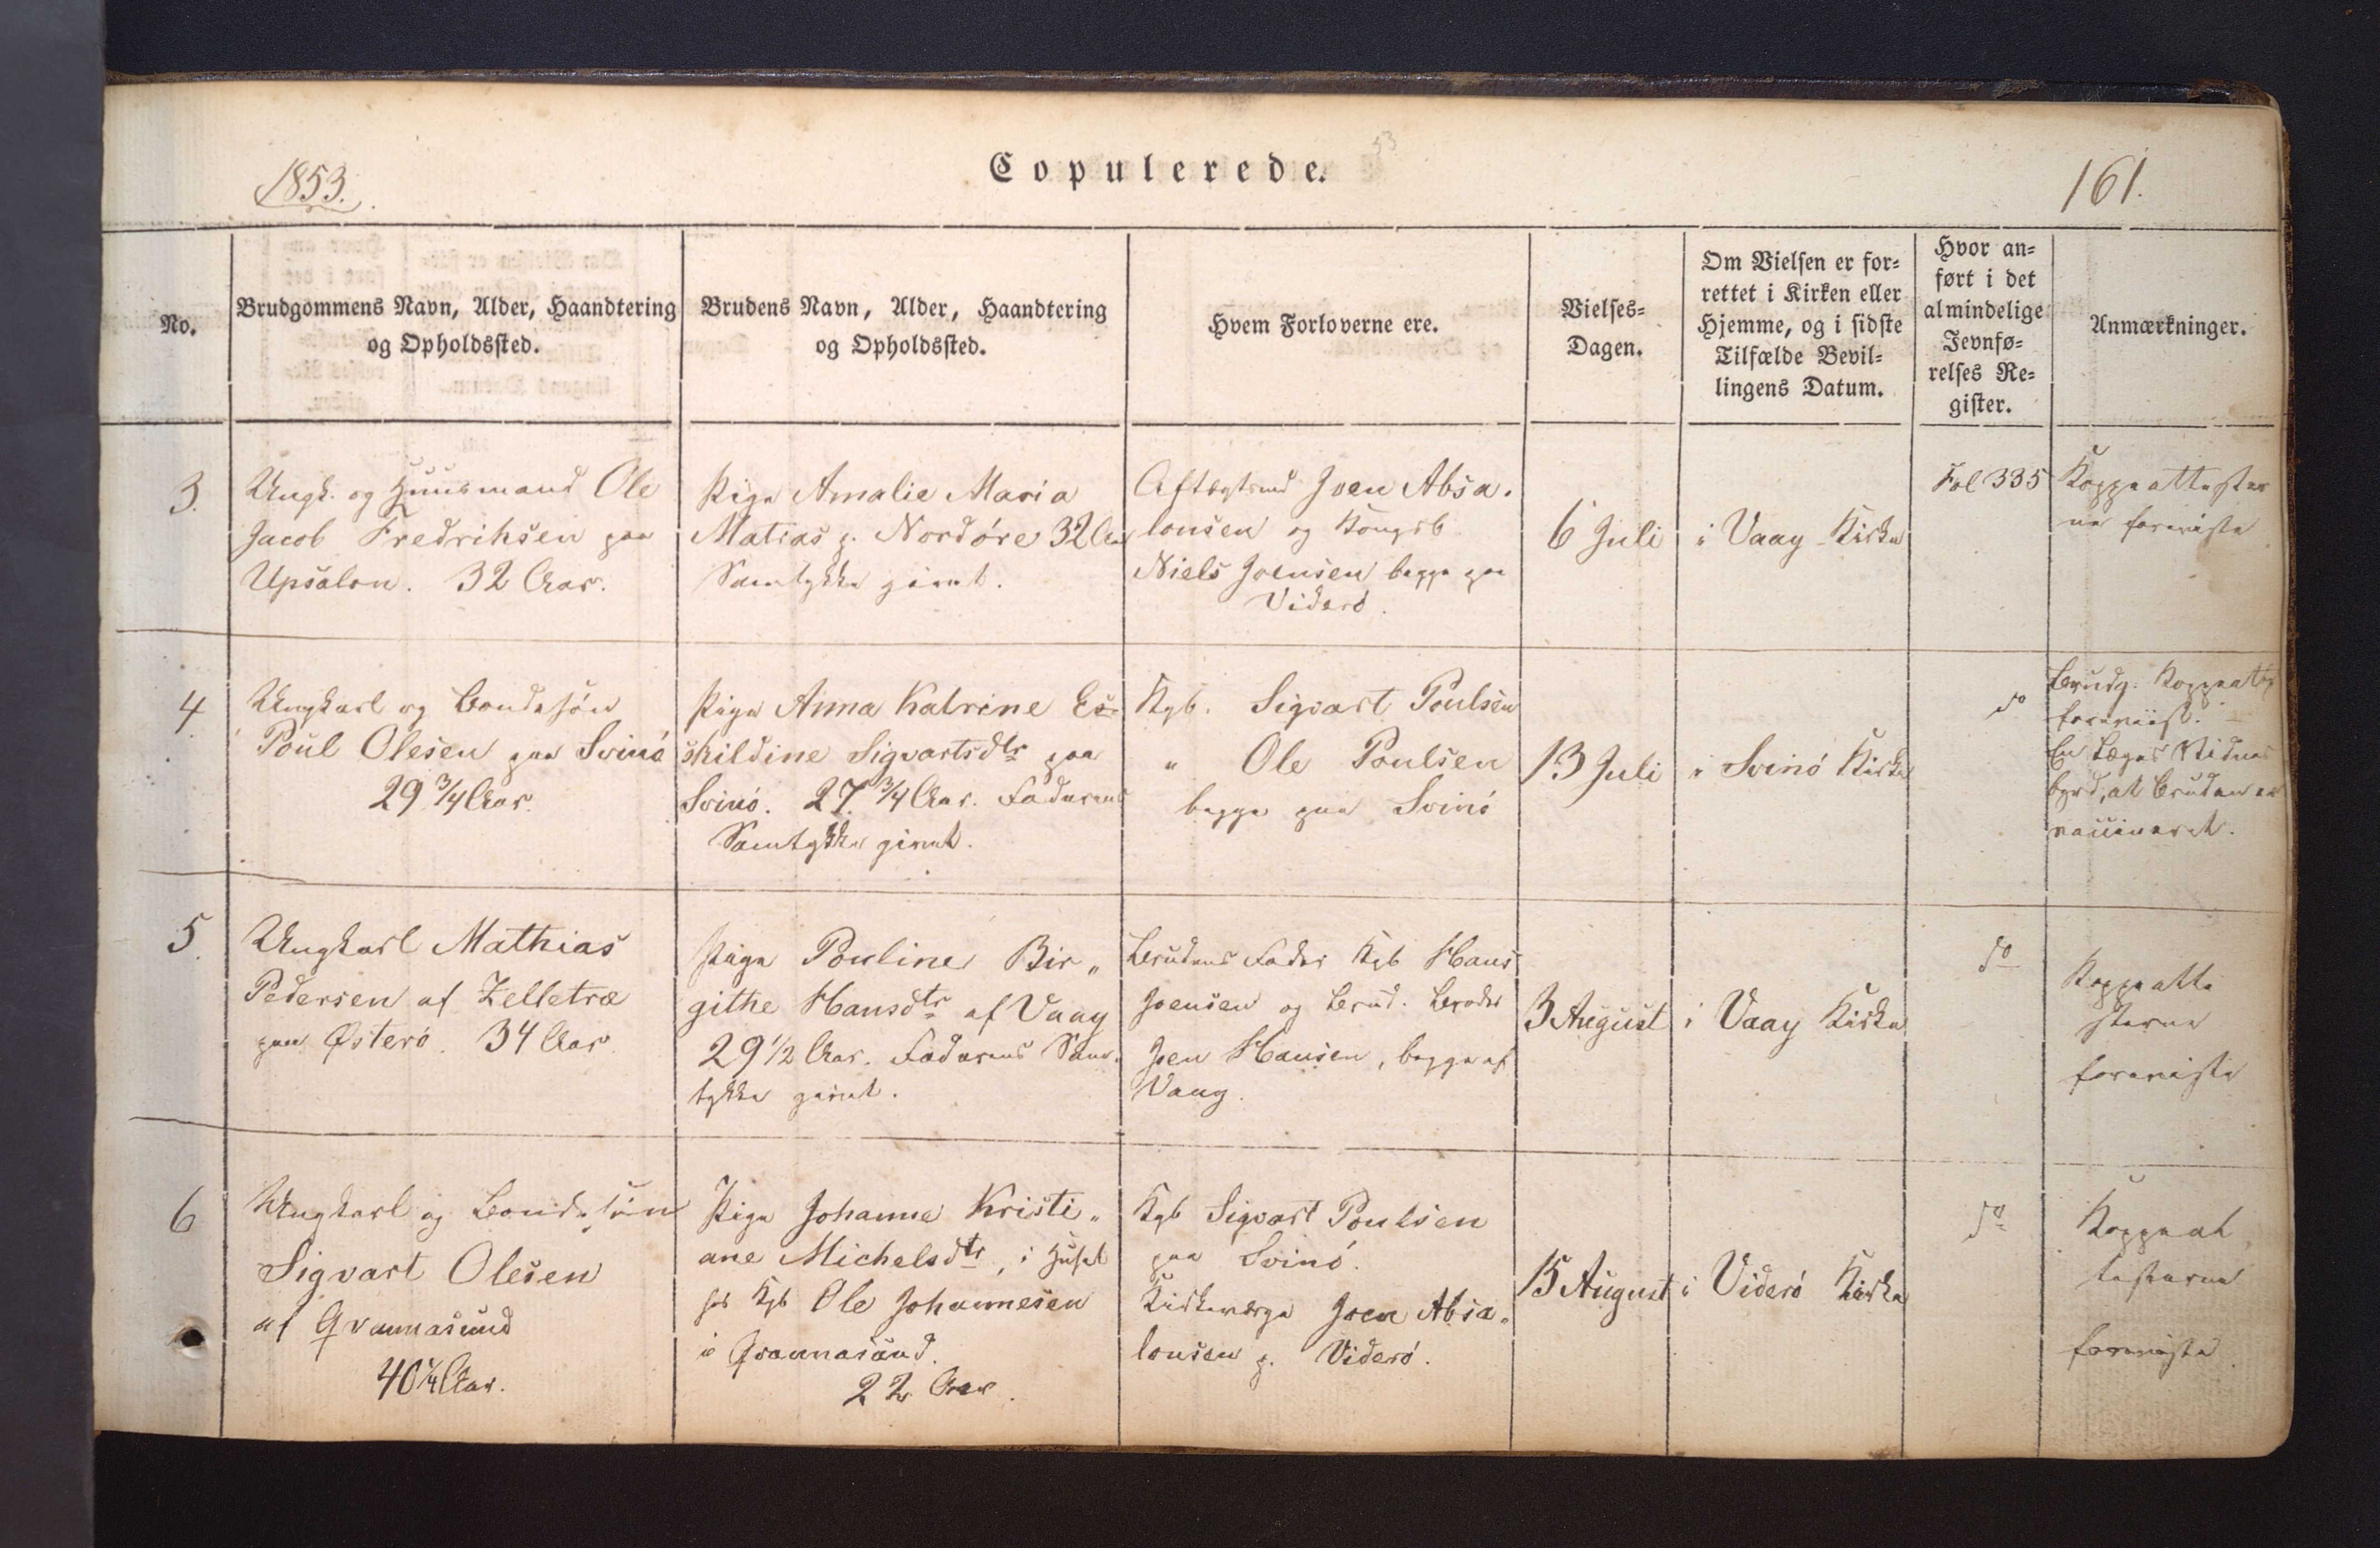 1853.
Copulerede.
53
161.
No.
Brudgommens Navn, Alder, Haandtering
og Opholdssted.
Brudens Navn, Alder, Haandtering
og Opholdssted.
Hvem Forloverne ere.
Vielses-
Dagen.
Om Vielsen er for-
rettet i Kirken eller
Hjemme, og i sidste
Tilfælde Bevil-
lingens Datum.
Hvor an-
ført i det
almindelige
Jevnfø-
relses Re-
gister.
Anmærkninger.
3.
Ungk. og Huusmand Ole
Jacob Fredriksen paa
Upsalon. 32 Aar.
Pige Amalie Maria
Matias p. Nordøre 32 Aar
Samtykke givet.
Aftægtsmd Joen Absa-
lonsen og Kongsb
Niels Joensen begge paa
Viderø.
6 Juli
i Vaag Kirke
Fol 335
Koppeattester
ne foreviste
4.
Ungkarl og Bondesøn
Poul Olesen paa Svinø
29 3/4 Aar.
Pige Anna Katrine Es-
skildine Sigvartsdtr paa
Svinø. 27 3/4 Aar. Faderens
Samtykke givet.
Kgb. Sigvart Poulsen
" Ole Poulsen
begge paa Svinø
13 Juli
i Svinø Kirke
do
Brudg. Koppeatt
foreviist.
En Læges Vidnes
byrd, at Bruden er
vaccineret.
5.
Ungkarl Mathias
Pedersen af Zelletræ
paa Østerø. 34 Aar
Pige Pouline Bir„
githe Hansdtr af Vaag
29 1/2 Aar. Faderens Sam-
tykke givet.
Brudens Fader Kgb Hans
Joensen og Brud. Broder
Joen Hansen, begge af
Vaag.
3 August
i Vaag Kirke
do
Koppeatte
sterne
foreviste
6
Ungkarl og Bondesøn
Sigvart Olesen
af Qvannasund
40 1/4 Aar.
Pige Johanne Kristi„
ane Michelsdtr, i Huset
hos Kgb Ole Johannesen
i Qvannasund.
22 Aar.
Kgb Sigvart Poulsen
paa Svinø.
Kirkeværge Joen Absa„
lonsen p. Viderø.
15 August
i Viderø Kirke
do
Koppeat
testerne
foreviste